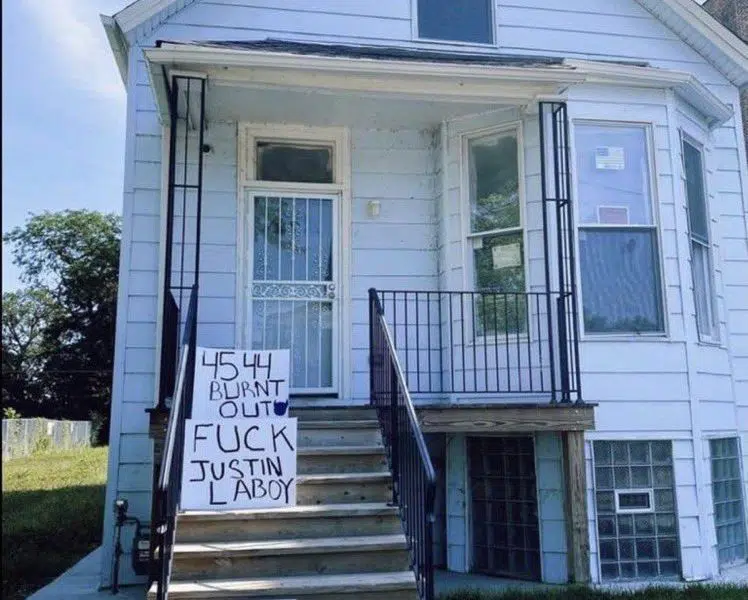 4544
BURNT
OUT
FUCK
JUSTIN
LABOY